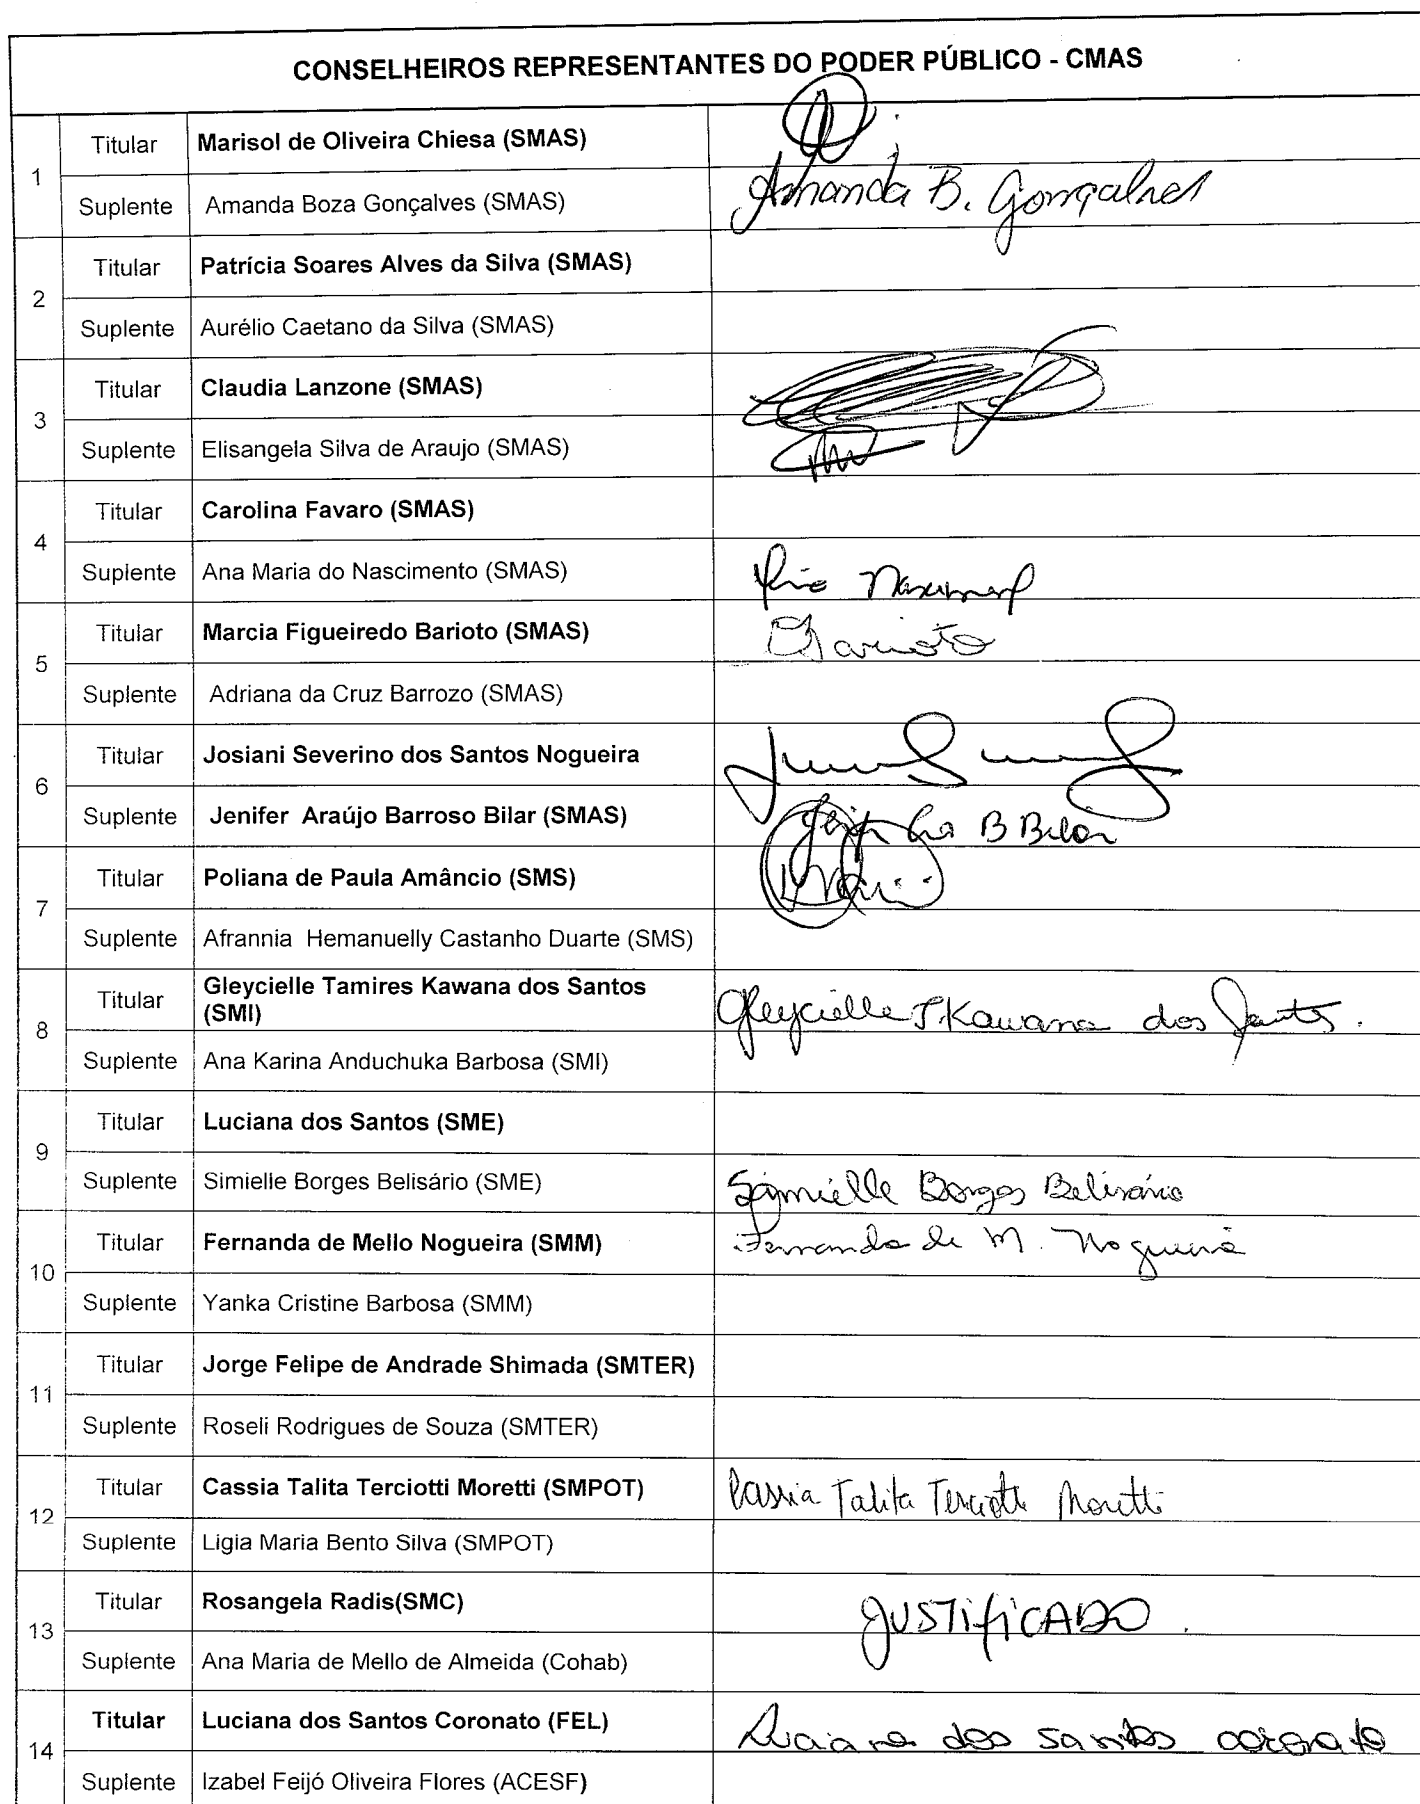 CONSELHEIROS REPRESENTANTES DO PODER PÚBLICO - CMAS
1
Titular Marisol de Oliveira Chiesa (SMAS)
Suplente Amanda Boza Gonçalves (SMAS) Amanda B. Gonçalves
2
Titular Patrícia Soares Alves da Silva (SMAS)
Suplente Aurélio Caetano da Silva (SMAS)
3
Titular Claudia Lanzone (SMAS)
Suplente Elisangela Silva de Araujo (SMAS)
4
Titular Carolina Favaro (SMAS)
Suplente Ana Maria do Nascimento (SMAS)
5
Titular Marcia Figueiredo Barioto (SMAS) Barioto
Suplente Adriana da Cruz Barrozo (SMAS)
6
Titular Josiani Severino dos Santos Nogueira
Suplente Jenifer Araújo Barroso Bilar (SMAS) B Bilar
7
Titular Poliana de Paula Amâncio (SMS)
Suplente Afrannia Hemanuelly Castanho Duarte (SMS)
8
Titular Gleycielle Tamires Kawana dos Santos
(SMI) Gleycielle T. Kawana dos Santos.
Suplente Ana Karina Anduchuka Barbosa (SMI)
9
Titular Luciana dos Santos (SME)
Suplente Simielle Borges Belisário (SME) Simielle Borges Belisário
10
Titular Fernanda de Mello Nogueira (SMM) Fernanda de M. Nogueira
Suplente Yanka Cristine Barbosa (SMM)
11
Titular Jorge Felipe de Andrade Shimada (SMTER)
Suplente Roseli Rodrigues de Souza (SMTER)
12
Titular Cassia Talita Terciotti Moretti (SMPOT) Cassia Talita Terciotti Moretti
Suplente Ligia Maria Bento Silva (SMPOT)
13
Titular Rosangela Radis(SMC) JUSTIFICADO.
Suplente Ana Maria de Mello de Almeida (Cohab)
14
Titular Luciana dos Santos Coronato (FEL) Luciana dos Santos coronato
Suplente Izabel Feijó Oliveira Flores (ACESF)